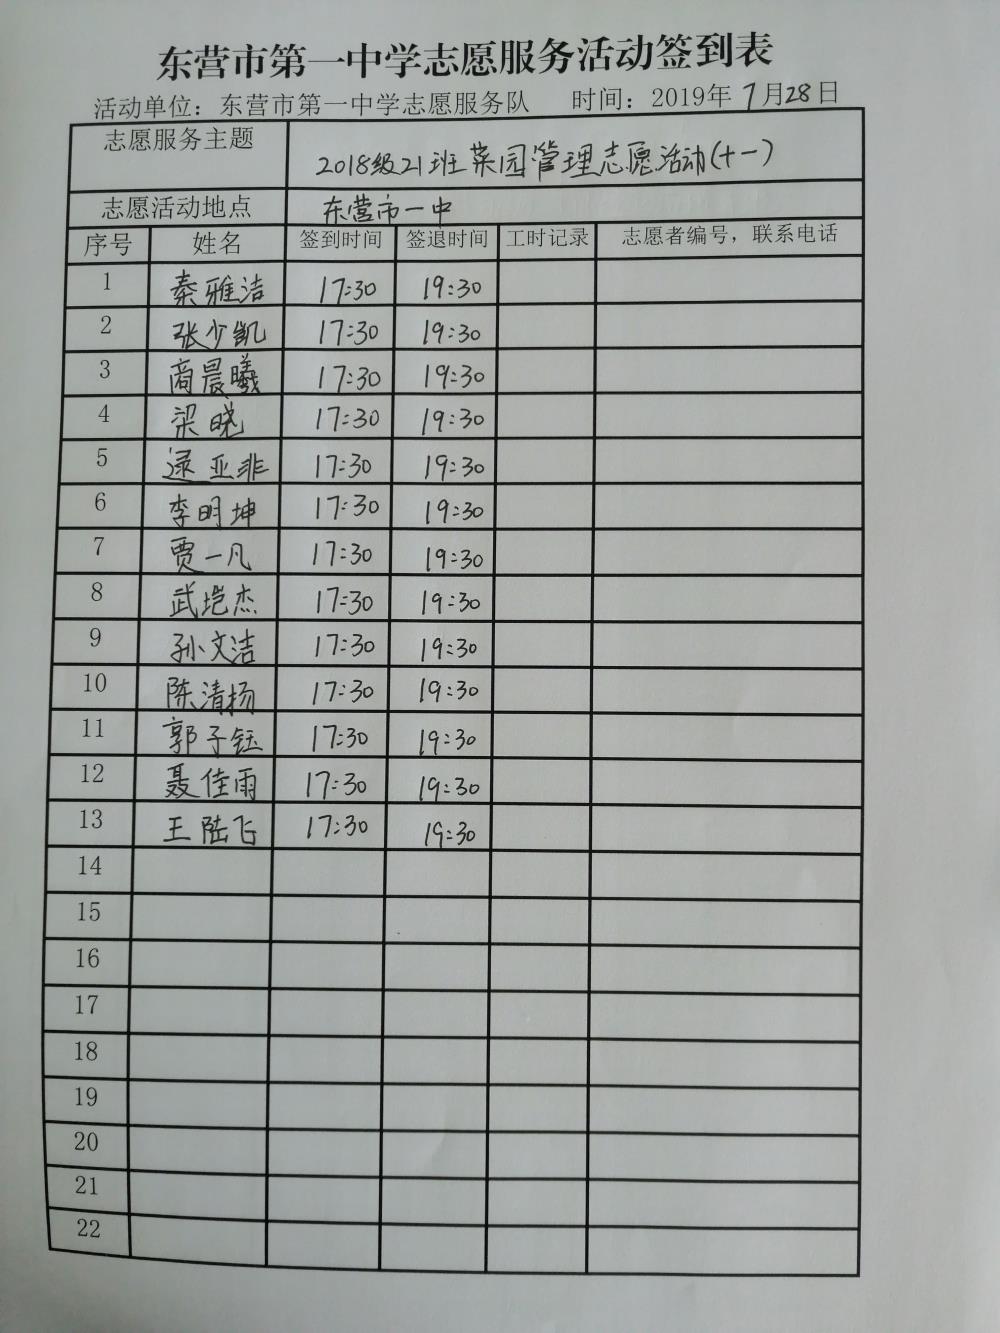 东营市第一中学志愿服务活动签到表
活动单位：东营市第一中学志愿服务队 时间：2019年 7月28日
志愿服务主题 2018级21班菜园管理志愿活动(十一)
志愿活动地点 东营市一中
序号 姓名 签到时间 签退时间 工时记录 志愿者编号，联系电话
1 秦雅洁 17:30 19:30
2 张少凯 17:30 19:30
3 商晨曦 17:30 19:30
4 梁晓 17:30 19:30
5 逯亚非 17:30 19:30
6 李明坤 17:30 19:30
7 贾一凡 17:30 19:30
8 武垲杰 17:30 19:30
9 孙文洁 17:30 19:30
10 陈清扬 17:30 19:30
11 郭子钰 17:30 19:30
12 聂佳雨 17:30 19:30
13 王陆飞 17:30 19:30
14
15
16
17
18
19
20
21
22